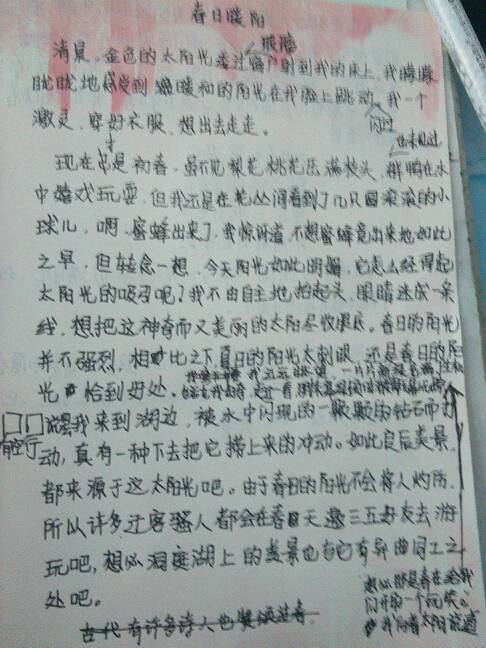 春日暖阳
眼睛
清晨。金色的太阳光透过窗户射到我的床上,我朦朦
胧胧地感觉到暖和的阳光在我脸上跳动。我一个
激灵,穿好衣服,想出去走走。
闪过
也未见过
现在虽是初春,虽不见梨花桃花压满枝头,群鸭在水
中嬉戏玩耍,但我还是在花丛间看到了几只圆滚滚的小
球儿,啊,蜜蜂出来了,我惊讶道,不想蜜蜂竟出来地如此
之早,但转念一想,今天阳光如此明媚,它怎么经得起
太阳光的吸召呢?我不由自主地抬起头,眼睛迷成一条
线,想把这神奇而又美丽的太阳尽收眼底。春日的阳光
并不强烈,相比之下夏日的阳光太刺眼,还是春日的阳
光恰到好处。
我来到湖边,被水中闪现的一颗颗的钻石而打
空行
动,真有一种下去把它捞上来的冲动。如此良辰美景,
都来源于这太阳光吧。由于春日的阳光不会将人灼伤,
所以许多迁客骚人都会在春天邀三五好友去游
玩吧,想必洞庭湖上的美景也有它有异曲同工之
处吧。
想必那是春在给我
们开的一个玩笑。
我向着太阳说道
古代有许多诗人也